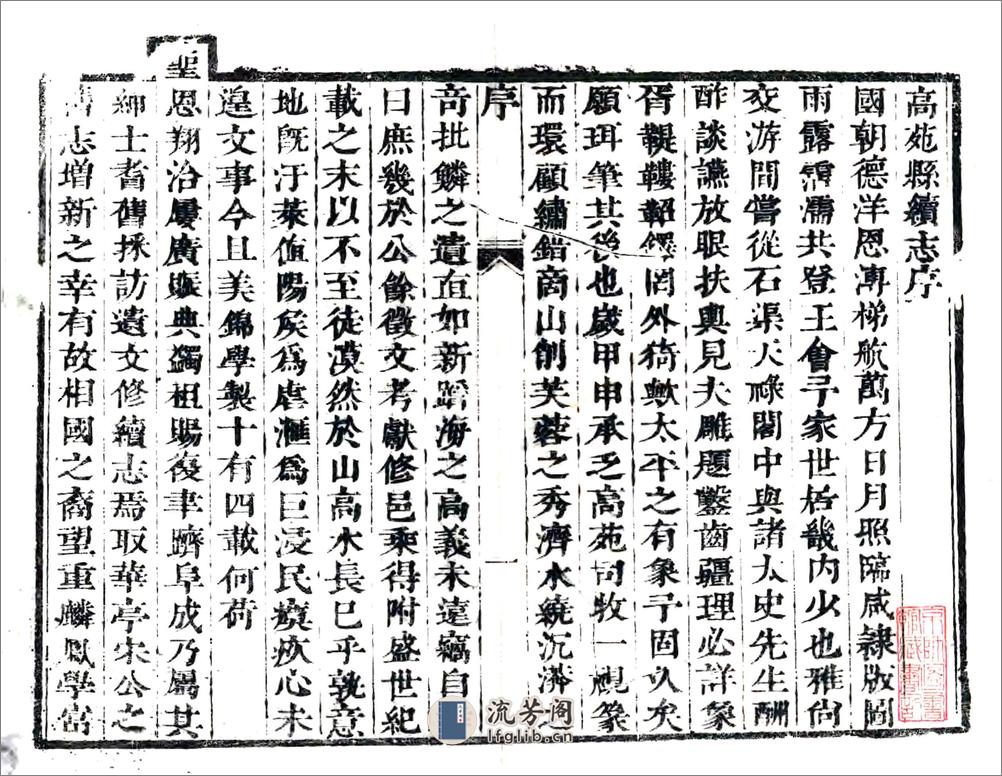 高苑縣續志序
國朝德洋恩溥梯航萬方日月照臨咸隸版圖
雨露霑濡共登王會予家世居畿內少也雅尚
交游間嘗從石渠天祿閣中與諸太史先生酬
酢談讌放眼扶輿見夫雕題鑿齒疆理必詳象
胥鞮鞻韜鐸罔外猗歟太平之有象予固久矣
願珥筆其後也歲甲申承乏高苑司牧一視篆
而環顧繡錯商山削芙蓉之秀濟水繞沉
序
一
奇批鱗之遺直如新蹈海之高義未遠竊自
曰庶幾於公餘徵文考獻修邑乘得附盛世紀
載之末以不至徒漠然於山高水長已乎孰意
地既汙萊值陽矦爲虐滙爲巨浸民瘼疚心未
遑文事今且美錦學製十有四載何荷
聖恩翔洽屢廣賑典蠲租賜復聿躋阜成乃屬其
紳士耆舊採訪遺文修續志焉取華亭宋公之
舊志增新之幸有故相國之裔望重麟鳳學富
流芳阁
lfglib.cn